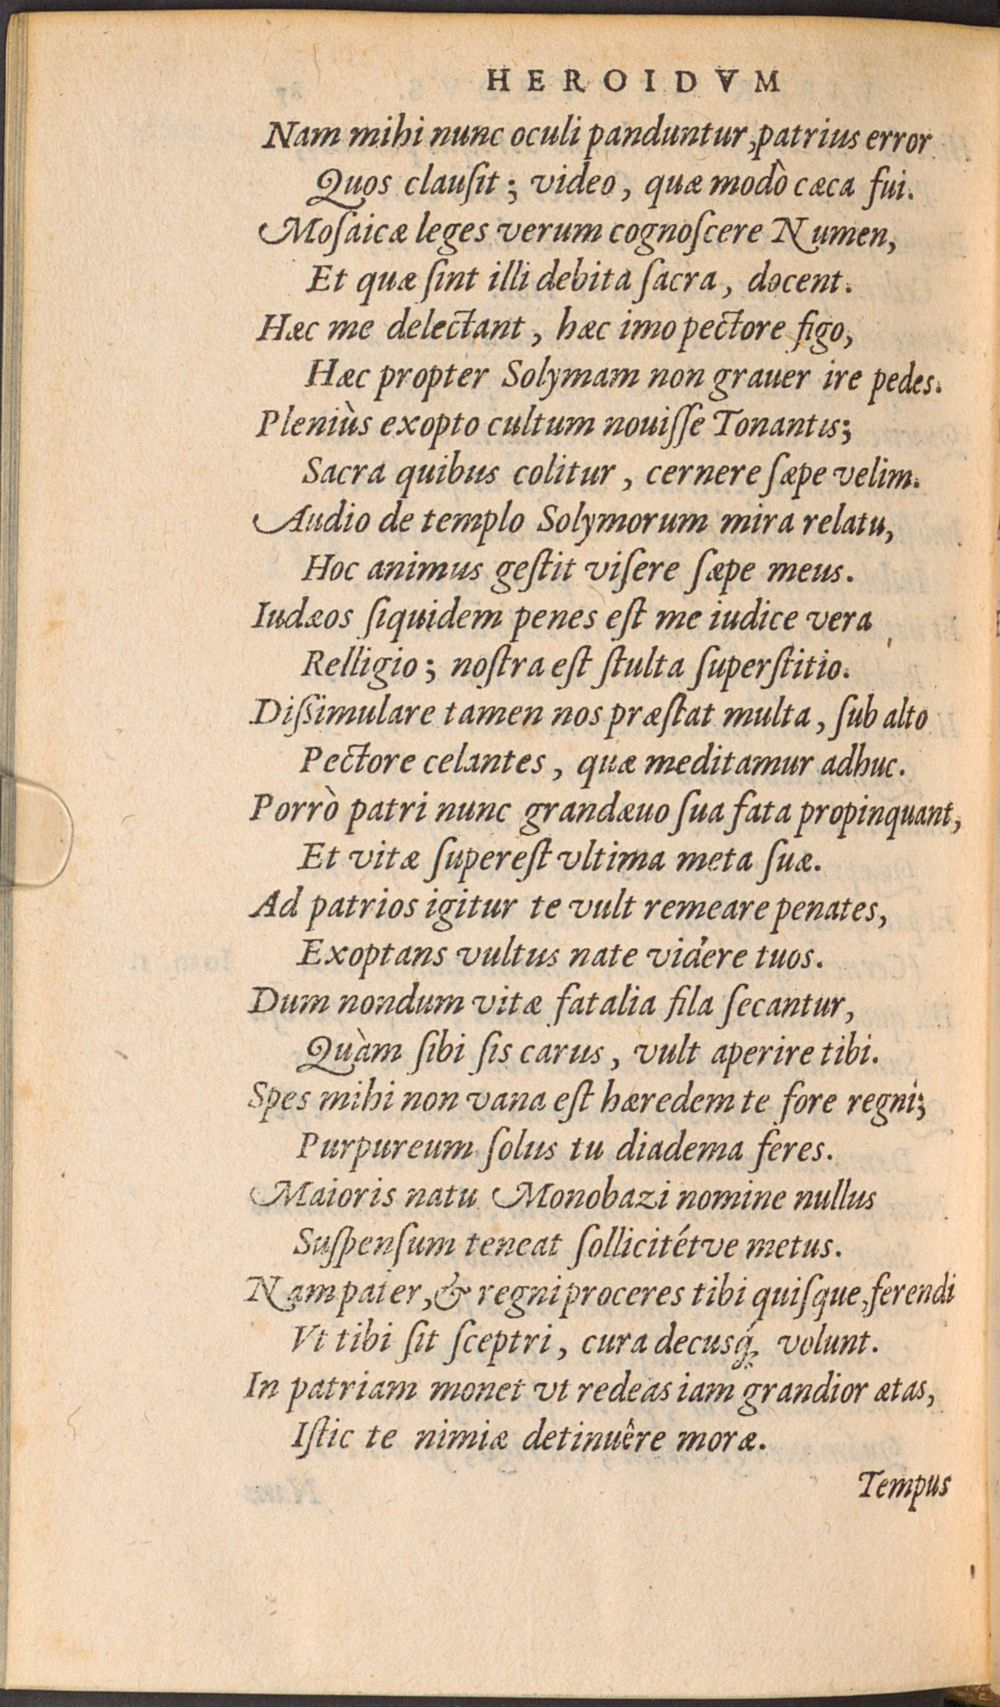 HEROIDVM
Nam mihi nunc oculi panduntur, patrius error
Quos clauſit; video, quæ modò cæca fui.
Moſaicæ leges verum cognoſcere Numen,
Et quæ ſint illi debita ſacra, docent.
Hæc me delectant, hæc imo pectore figo,
Hæc propter Solymam non grauer ire pedes.
Pleniùs exopto cultum nouiſſe Tonantis;
Sacra quibus colitur, cernere ſæpe velim.
Audio de templo Solymorum mira relatu,
Hoc animus geſtit viſere ſæpe meus.
Iudæos ſiquidem penes eſt me iudice vera
Relligio; noſtra eſt ſtulta ſuperſtitio.
Diſsimulare tamen nos præſtat multa, ſub alto
Pectore celantes, quæ meditamur adhuc.
Porrò patri nunc grandæuo ſua fata propinquant,
Et vitæ ſupereſt vltima meta ſuæ.
Ad patrios igitur te vult remeare penates,
Exoptans vultus nate videre tuos.
Dum nondum vitæ fatalia fila ſecantur,
Quàm ſibi ſis carus, vult aperire tibi.
Spes mihi non vana eſt hæredem te fore regni;
Purpureum ſolus tu diadema feres.
Maioris natu Monobazi nomine nullus
Suſpenſum teneat ſollicitétve metus.
Nam pater, & regni proceres tibi quiſque, ferendi
Vt tibi ſit ſceptri, cura decusq́; volunt.
In patriam monet vt redeas iam grandior ætas,
Iſtic te nimiæ detinuêre moræ.
Tempus